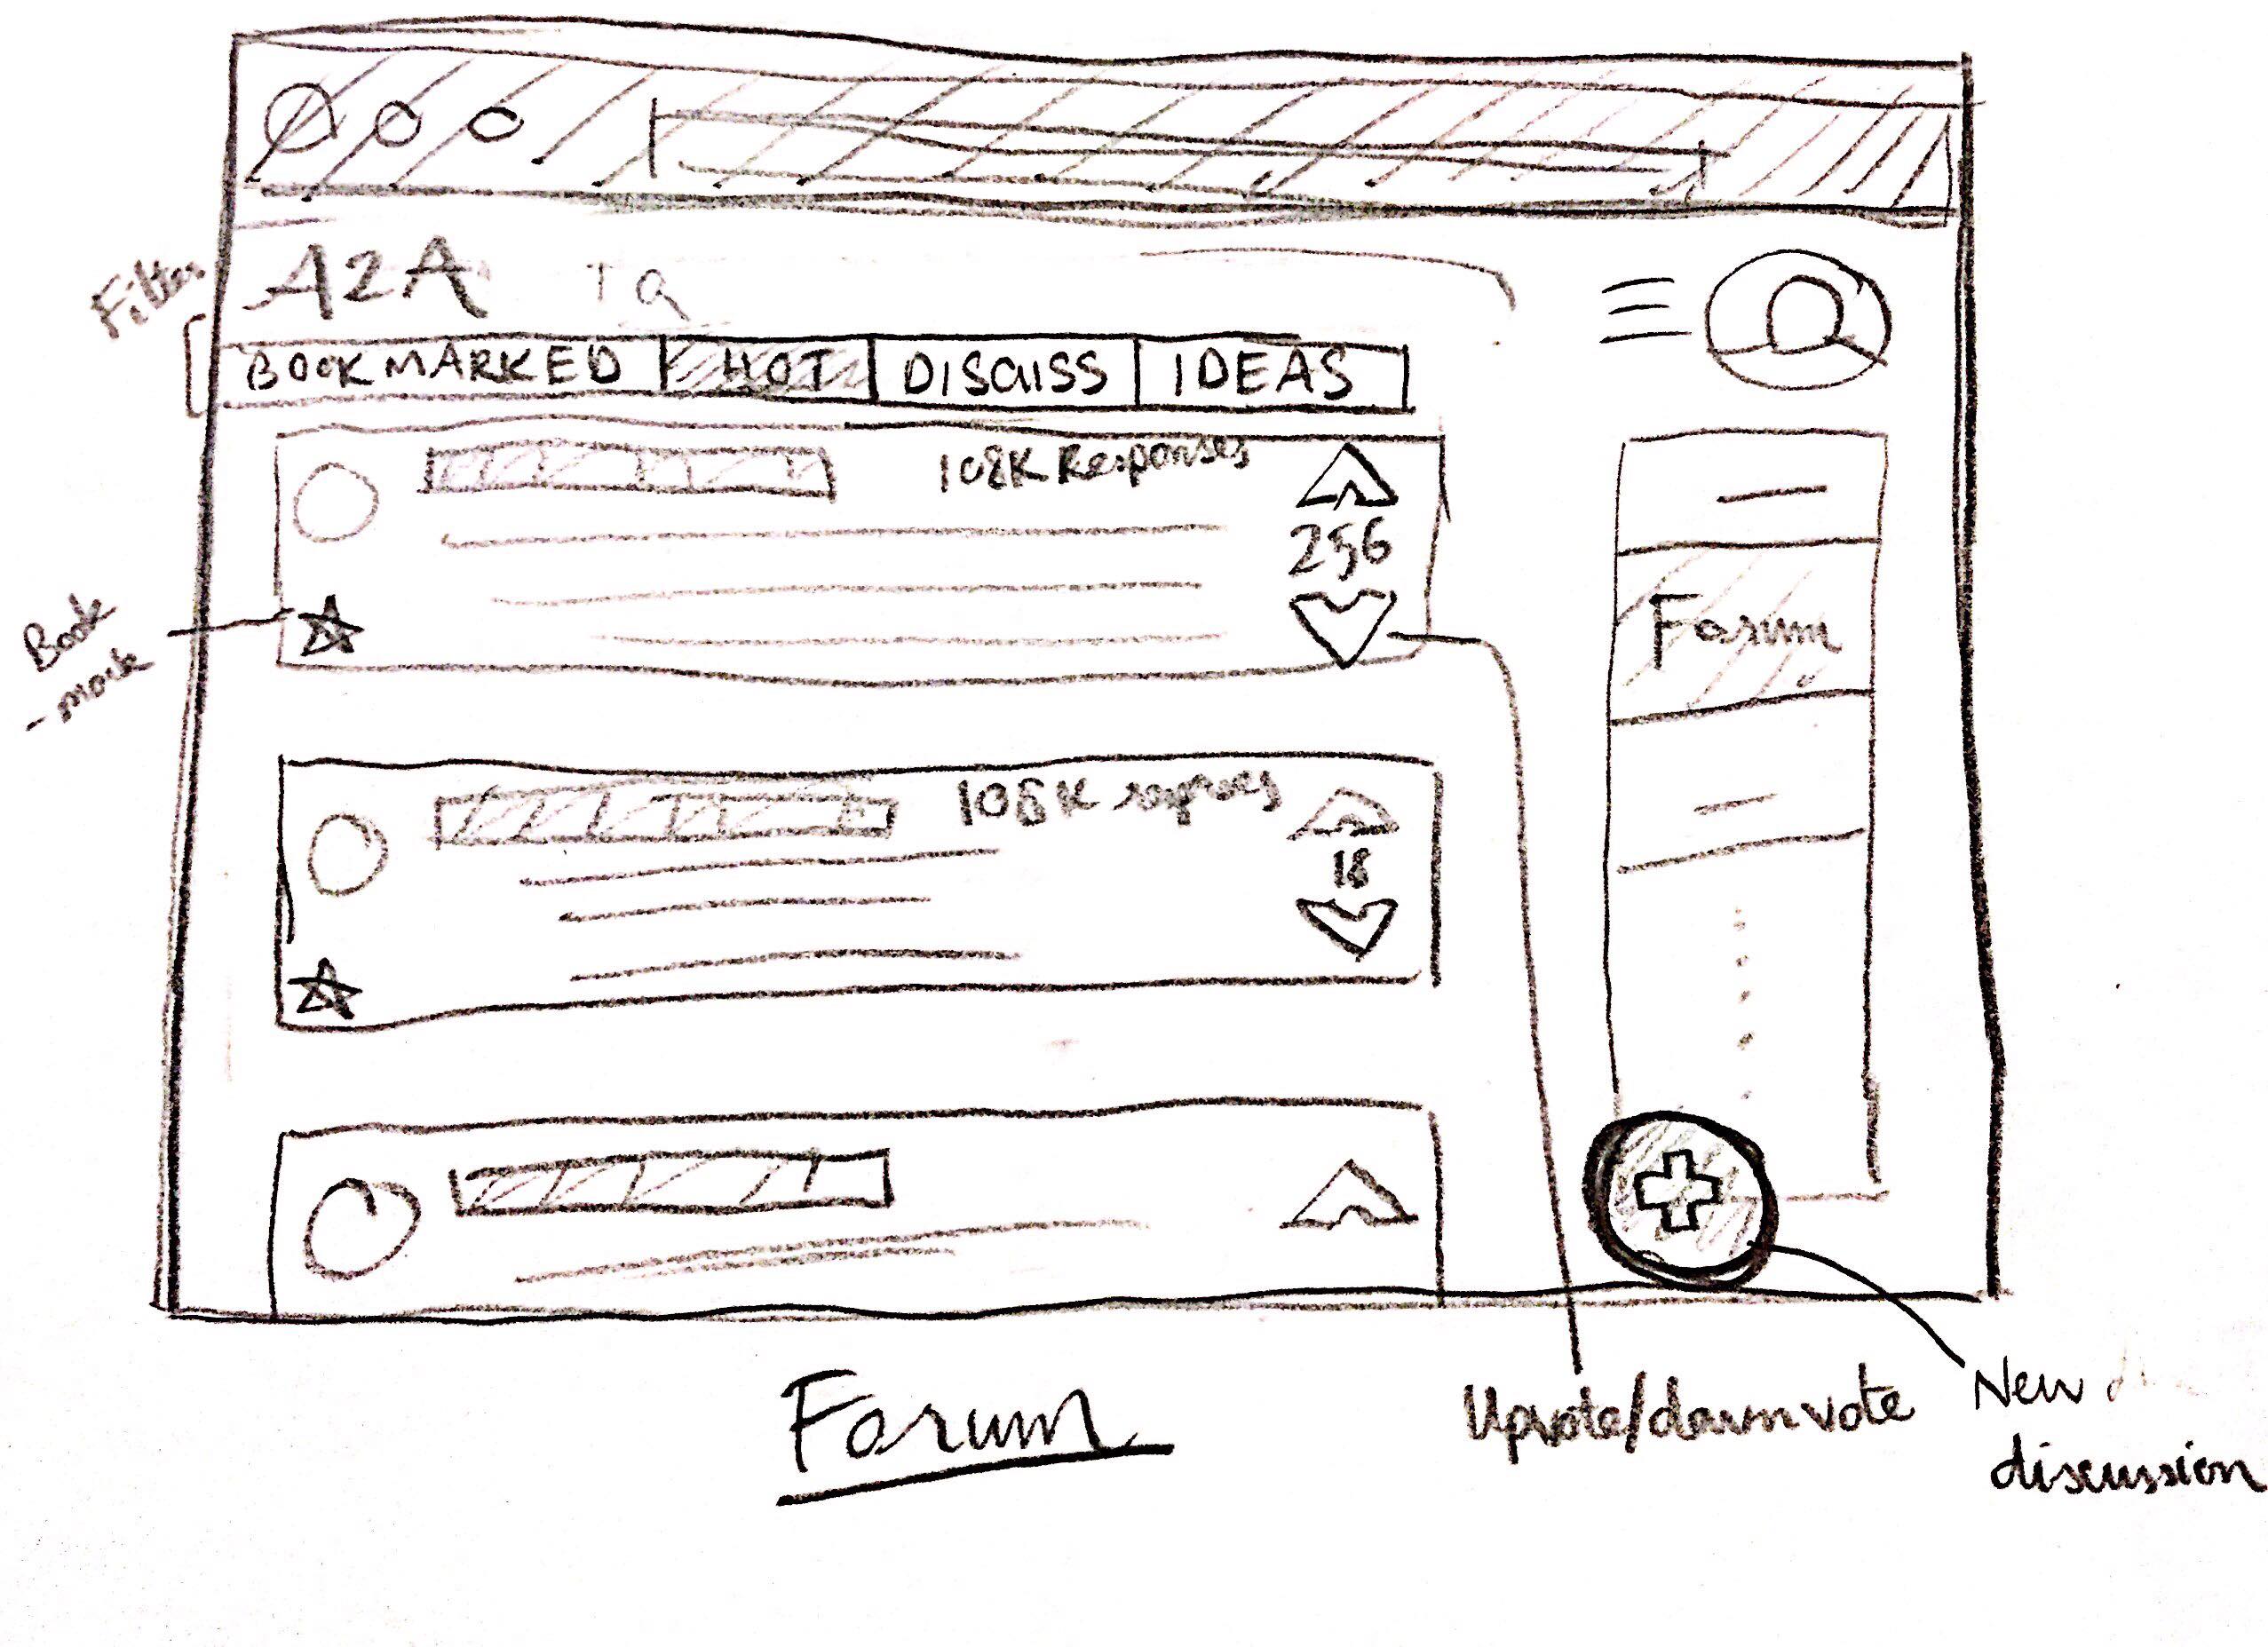 Filter
A2A
BOOKMARKED HOT DISCUSS IDEAS
108K Responses
256
Book
-mark
Forum
108K
18
Forum
Upvote/downvote
New
discussion